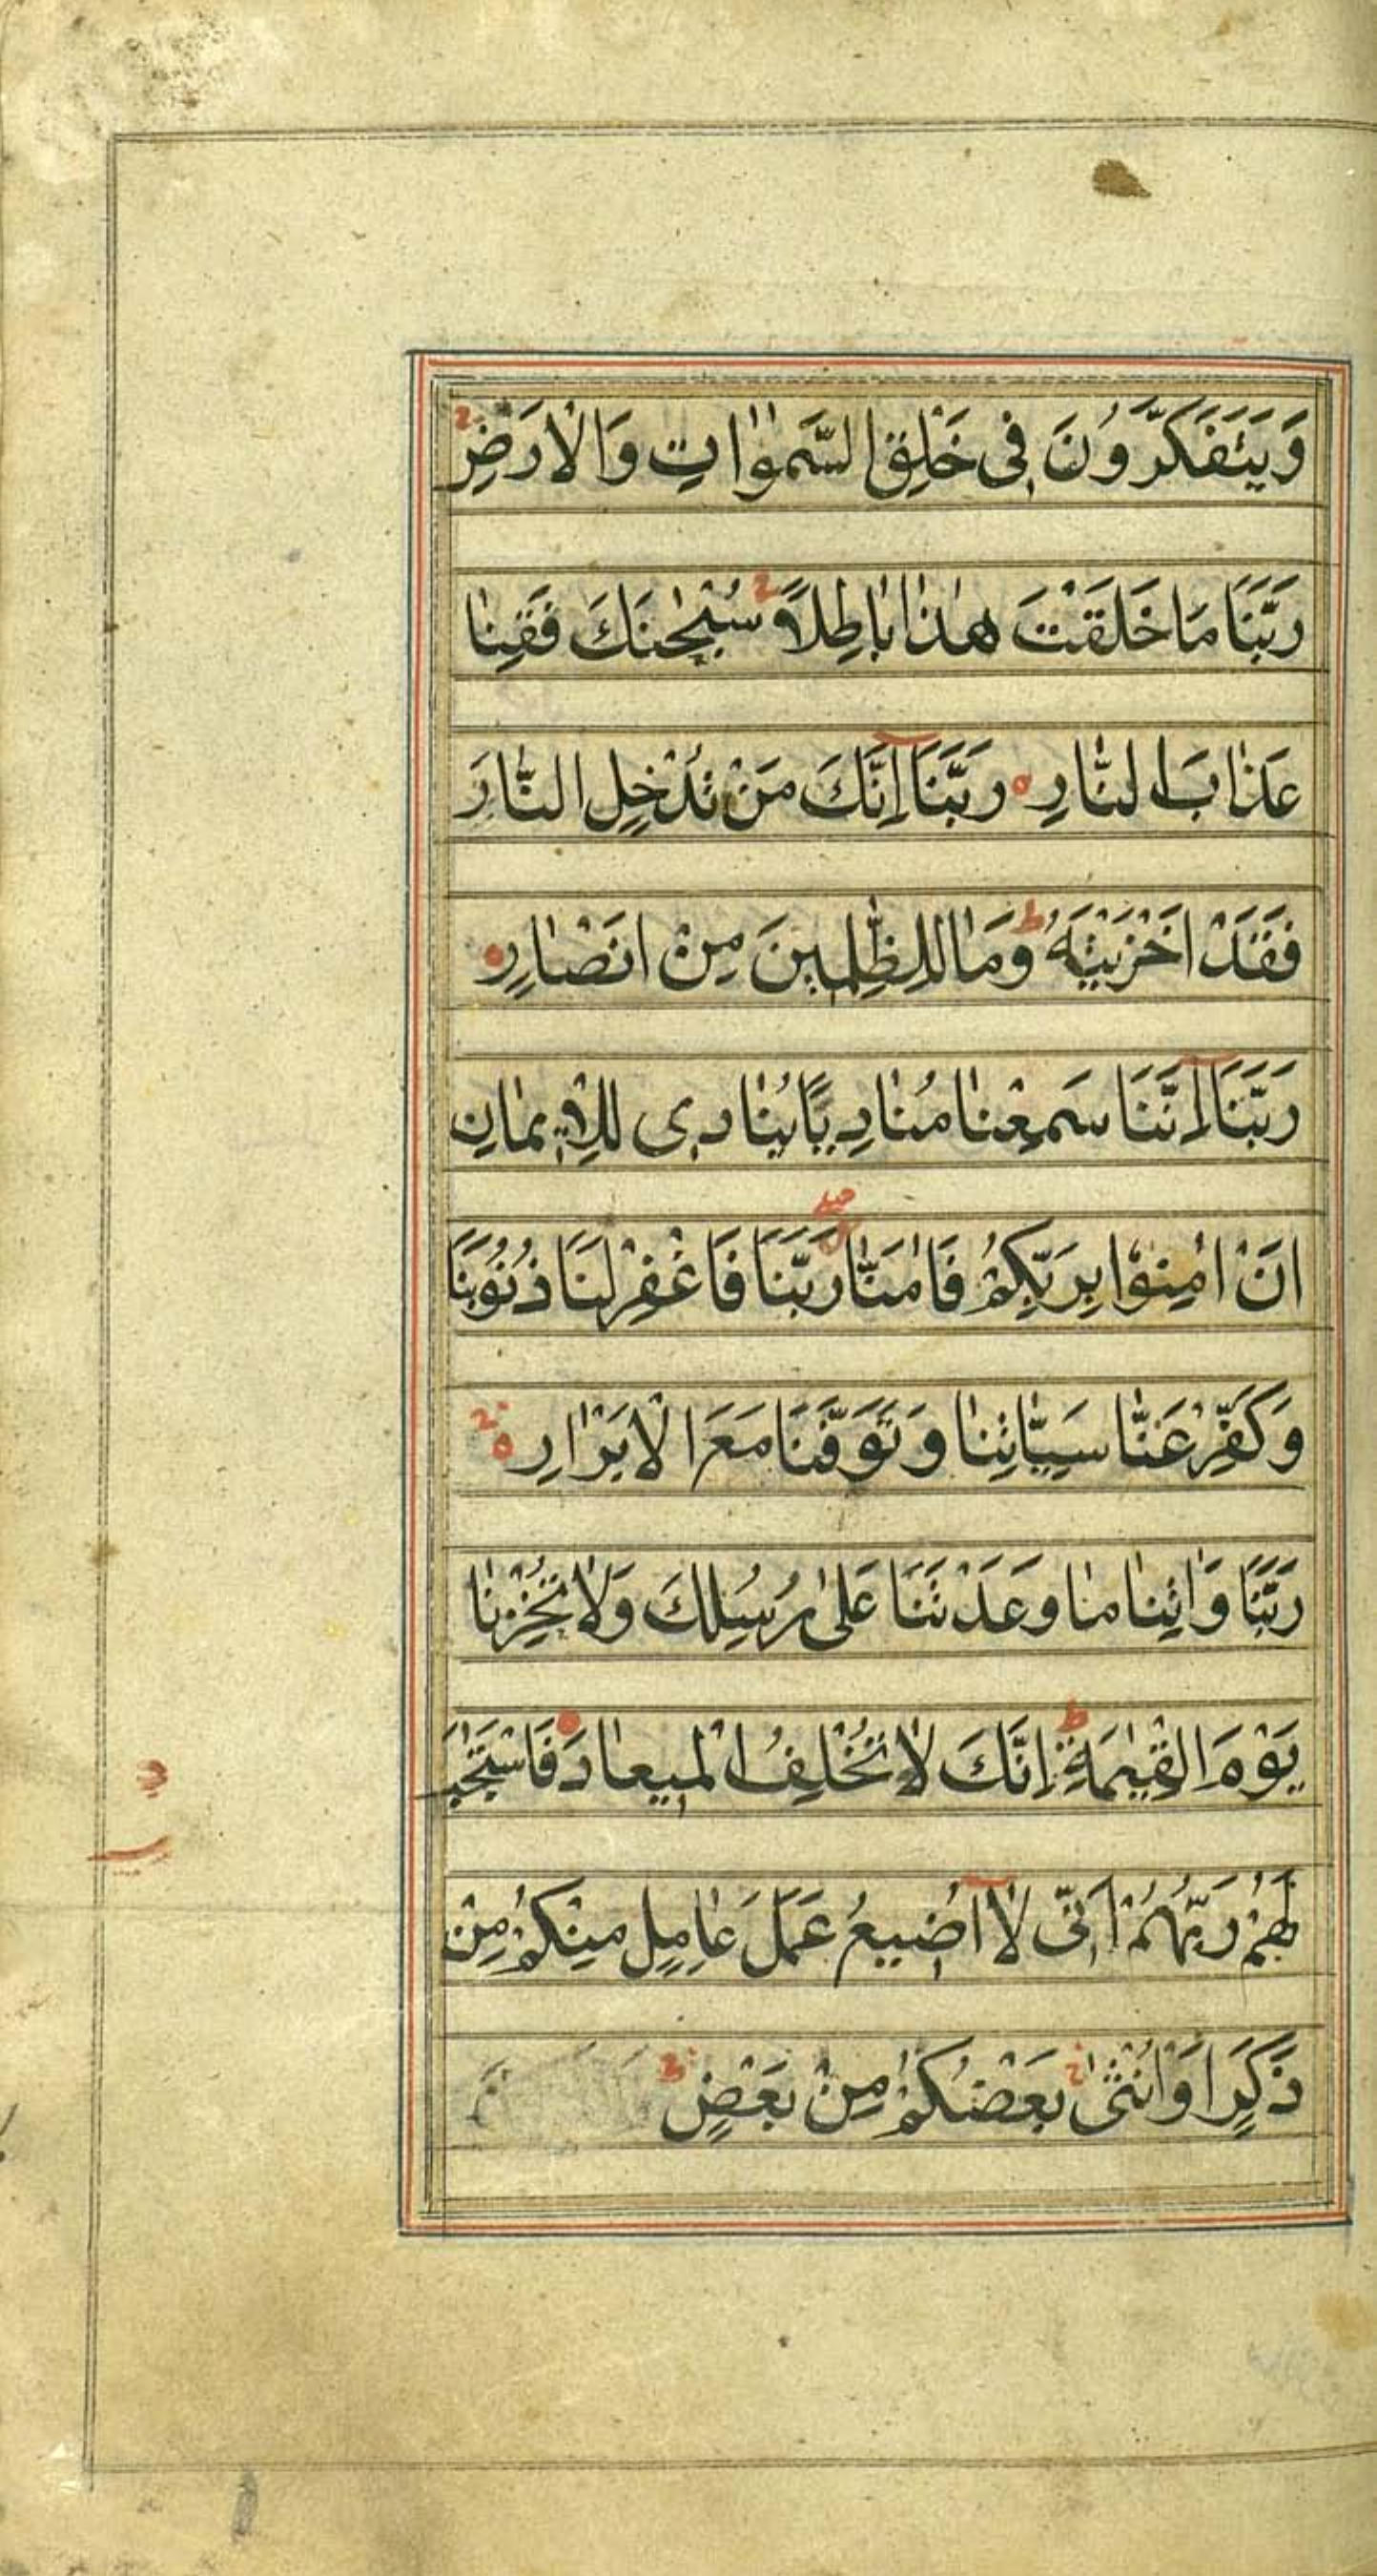 وَيَتَفَكَّرُونَ فِى خَلْقِ السَّمٰوَاتِ وَالْاَرْضِ ج
رَبَّنَا مَا خَلَقْتَ هٰذَا بَاطِلًا ج سُبْحٰنَكَ فَقِنَا
عَذَابَ النَّارِ ه رَبَّنَآ اِنَّكَ مَنْ تُدْخِلِ النَّارَ
فَقَدْ اَخْزَيْتَهُ ط وَمَا لِلظّٰلِمِينَ مِنْ اَنْصَارٍ
رَبَّنَآ اِنَّنَا سَمِعْنَا مُنَادِيًا يُنَادِى لِلْاِيمَانِ
اَنْ اٰمِنُوْا بِرَبِّكُمْ فَاٰمَنَّا رَبَّنَا فَاغْفِرْ لَنَا ذُنُوبَنَا
وَكَفِّرْ عَنَّا سَيِّاٰتِنَا وَتَوَفَّنَا مَعَ الْاَبْرَارِ ه ج
رَبَّنَا وَاٰتِنَا مَا وَعَدْتَنَا عَلٰى رُسُلِكَ وَلَا تُخْزِنَا
يَوْمَ الْقِيٰمَةِ ط اِنَّكَ لَا تُخْلِفُ الْمِيعَادَ فَاسْتَجَبَ
لَهُمْ رَبُّهُمْ اَنِّى لَآ اُضِيعُ عَمَلَ عَامِلٍ مِنْكُمْ مِنْ
ذَكَرٍ اَوْ اُنْثٰى ج بَعْضُكُمْ مِنْ بَعْضٍ ج